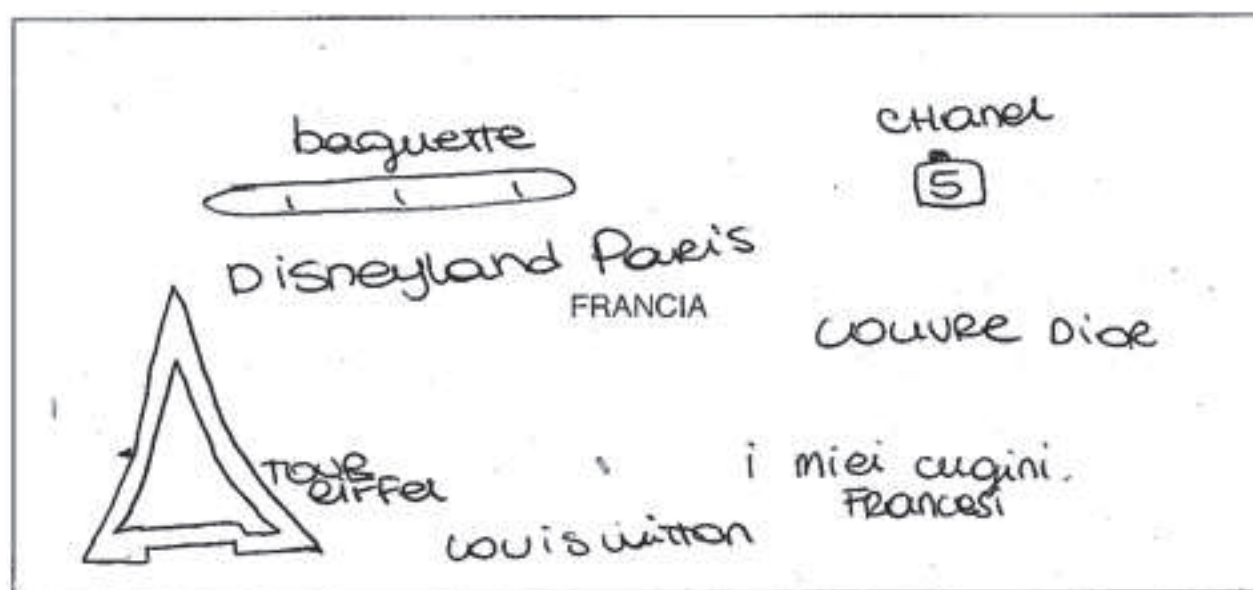 baguette
CHanel
5
Disneyland Paris
FRANCIA
LOUVRE DiOR
TOUR
eiffel
i miei cugini.
FRancesi
Louis vuitton